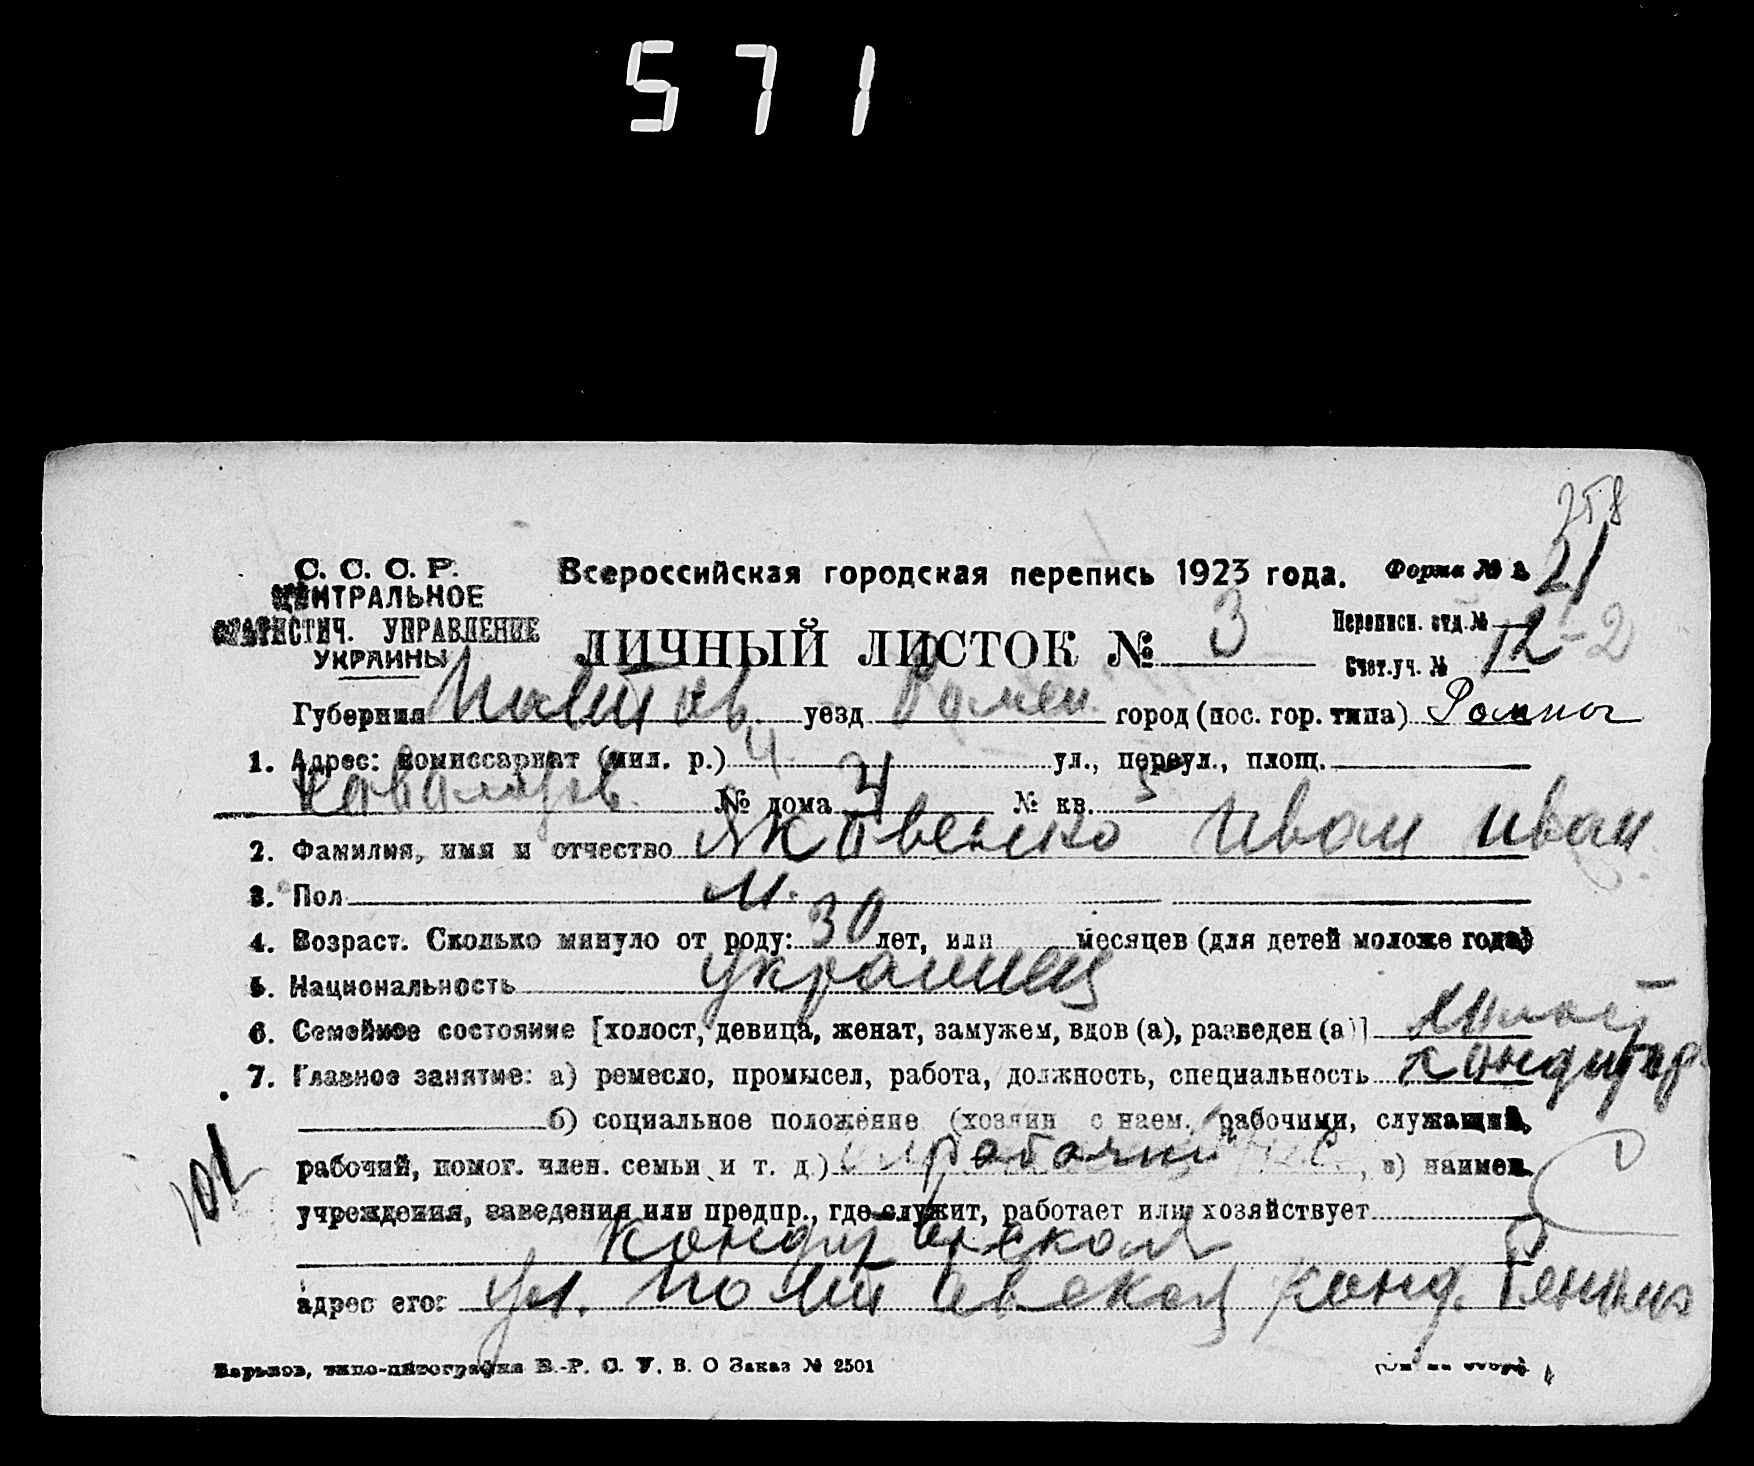 571
258
С. С. С. Р. Всероссийская городская перепись 1923 года. Форма № 2 21
ЦЕНТРАЛЬНОЕ
СТАТИСТИЧ. УПРАВЛЕНИЕ
УКРАИНЫ
ЛИЧНЫЙ ЛИСТОК № 3
Переписн. отд. №
Счет.уч. № 12-2
Губерния Полтав. уезд Ромен. город (пос. гор. типа) Ромны
1. Адрес: комиссариат (мил. р.) 4. ул., переул., площ.
№ дома № кв. 5
2. Фамилия, имя и отчество Яковенко Иван Иван.
3. Пол м.
4. Возраст. Сколько минуло от роду: 30 лет, или месяцев (для детей моложе года)
5. Национальность украинец
6. Семейное состояние [холост, девица, женат, замужем, вдов (а), разведен (а)] холост
7. Главное занятие: а) ремесло, промысел, работа, должность, специальность кондитер
б) социальное положение (хозяин с наем. рабочими, служащий,
рабочий, помог. член. семьи и т. д.) рабочий, в) наимен.
учреждения, заведения или предпр., где служит, работает или хозяйствует
кондитерской
адрес его: ул. Полтавская конд.
Харьков, типо-литография В.-Р. С. У. В. О Заказ № 2501